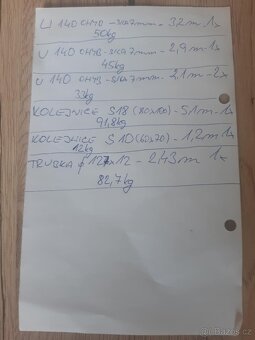 U 140 OHYB - SKA 7mm - 3,2m 1x
50kg
U 140 OHYB - SKA 7mm - 2,9m - 1x
45kg
U 140 OHYB - SKA 7mm - 2,1m - 2x
33kg
KOLEJNICE S18 - 5,1m - 1x
91,8kg
KOLEJNICE S10 (60x70) - 1,2m 1x
12kg
TRUBKA φ 127x12 - 2,43m 1x
82,7kg
Bazos.cz